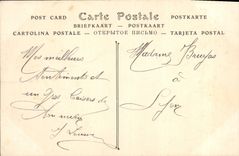 POST CARD Carte Postale POSTKARTE
BRIEFKAART — POSTKAART
CARTOLINA POSTALE — ОТКРЫТОЕ ПИСЬМО — TARJETA POSTAL
Mes meilleurs
sentiments et
un gros baiser de
Madame Bruyas
à